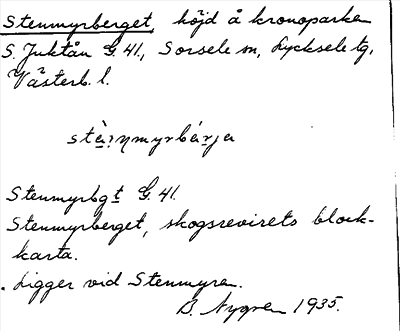 Stenmyrberget, höjd å kronoparken
S. Juktån G. 41., Sorsele sn, Lycksele tg,
Västerb. l.
Stenmyrbgt G. 41.
Stenmyrberget, skogsrevirets block-
karta.
. Ligger vid Stenmyran.
B. Nygren 1935.